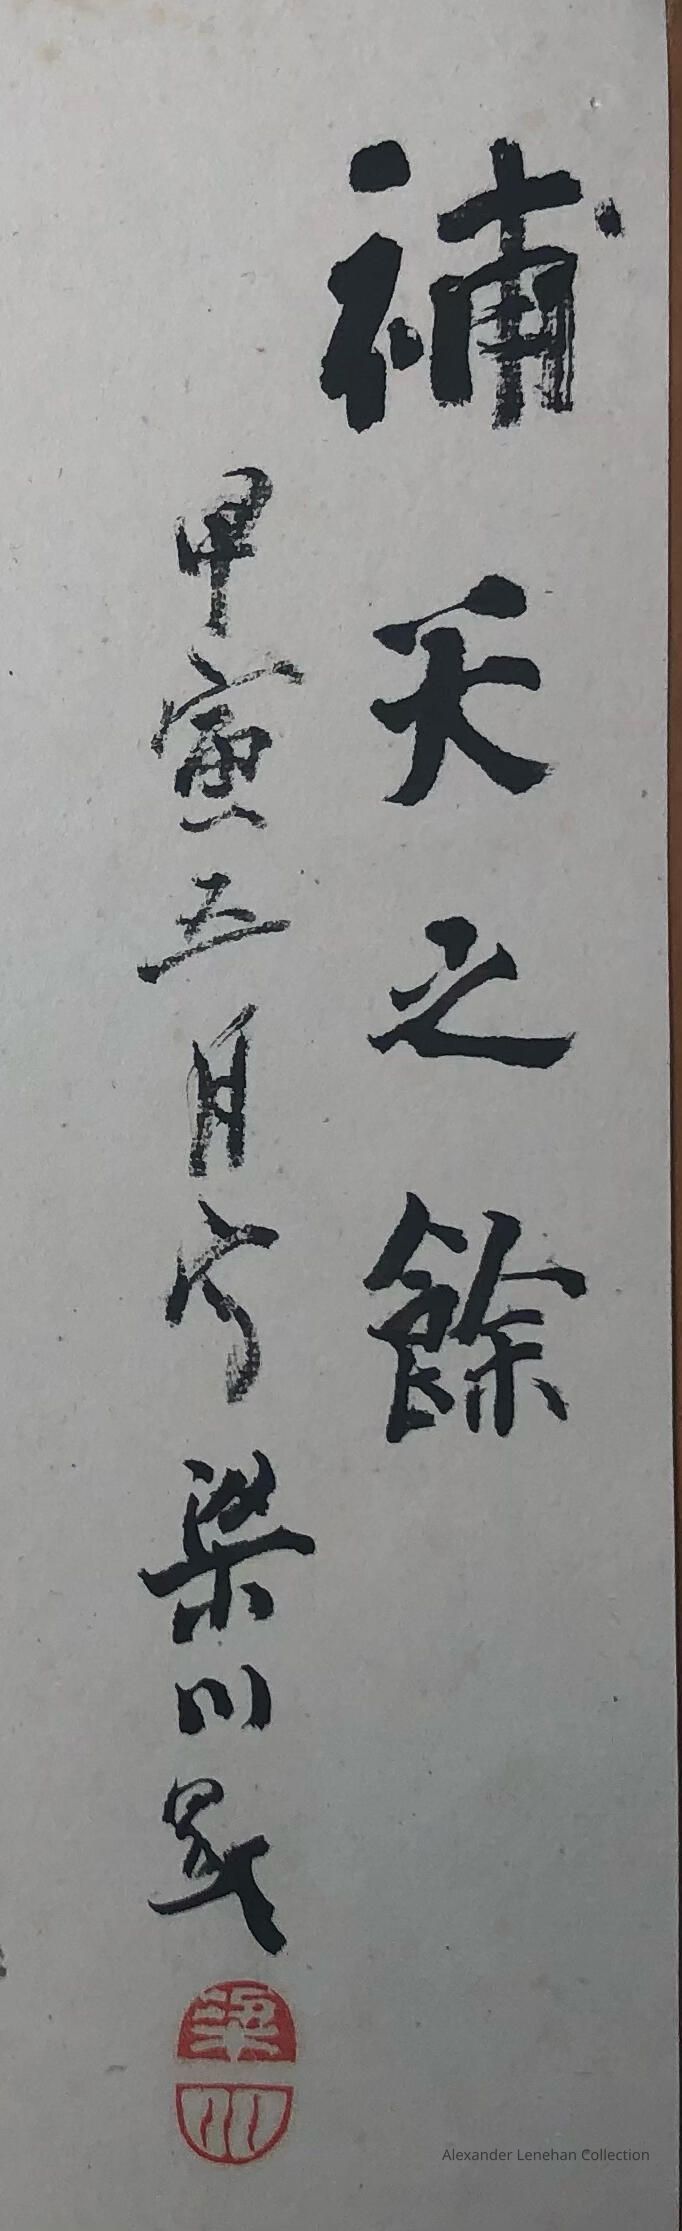 補天之餘
甲寅五月 梁川
梁
川
Alexander Lenehan Collection